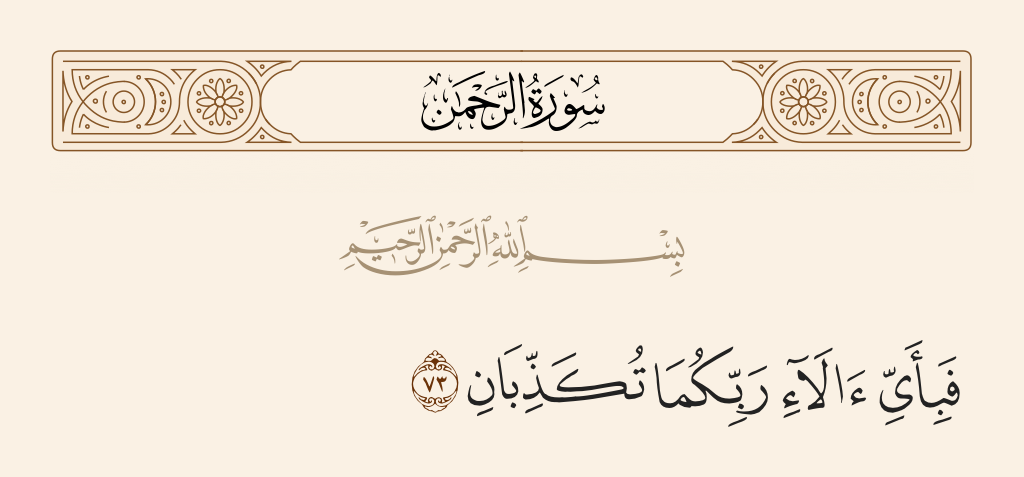 سُورَةُ الرَّحْمَٰن
بِسْمِ ٱللَّهِ ٱلرَّحْمَٰنِ ٱلرَّحِيمِ
فَبِأَىِّ ءَالَآءِ رَبِّكُمَا تُكَذِّبَانِ ٧٣